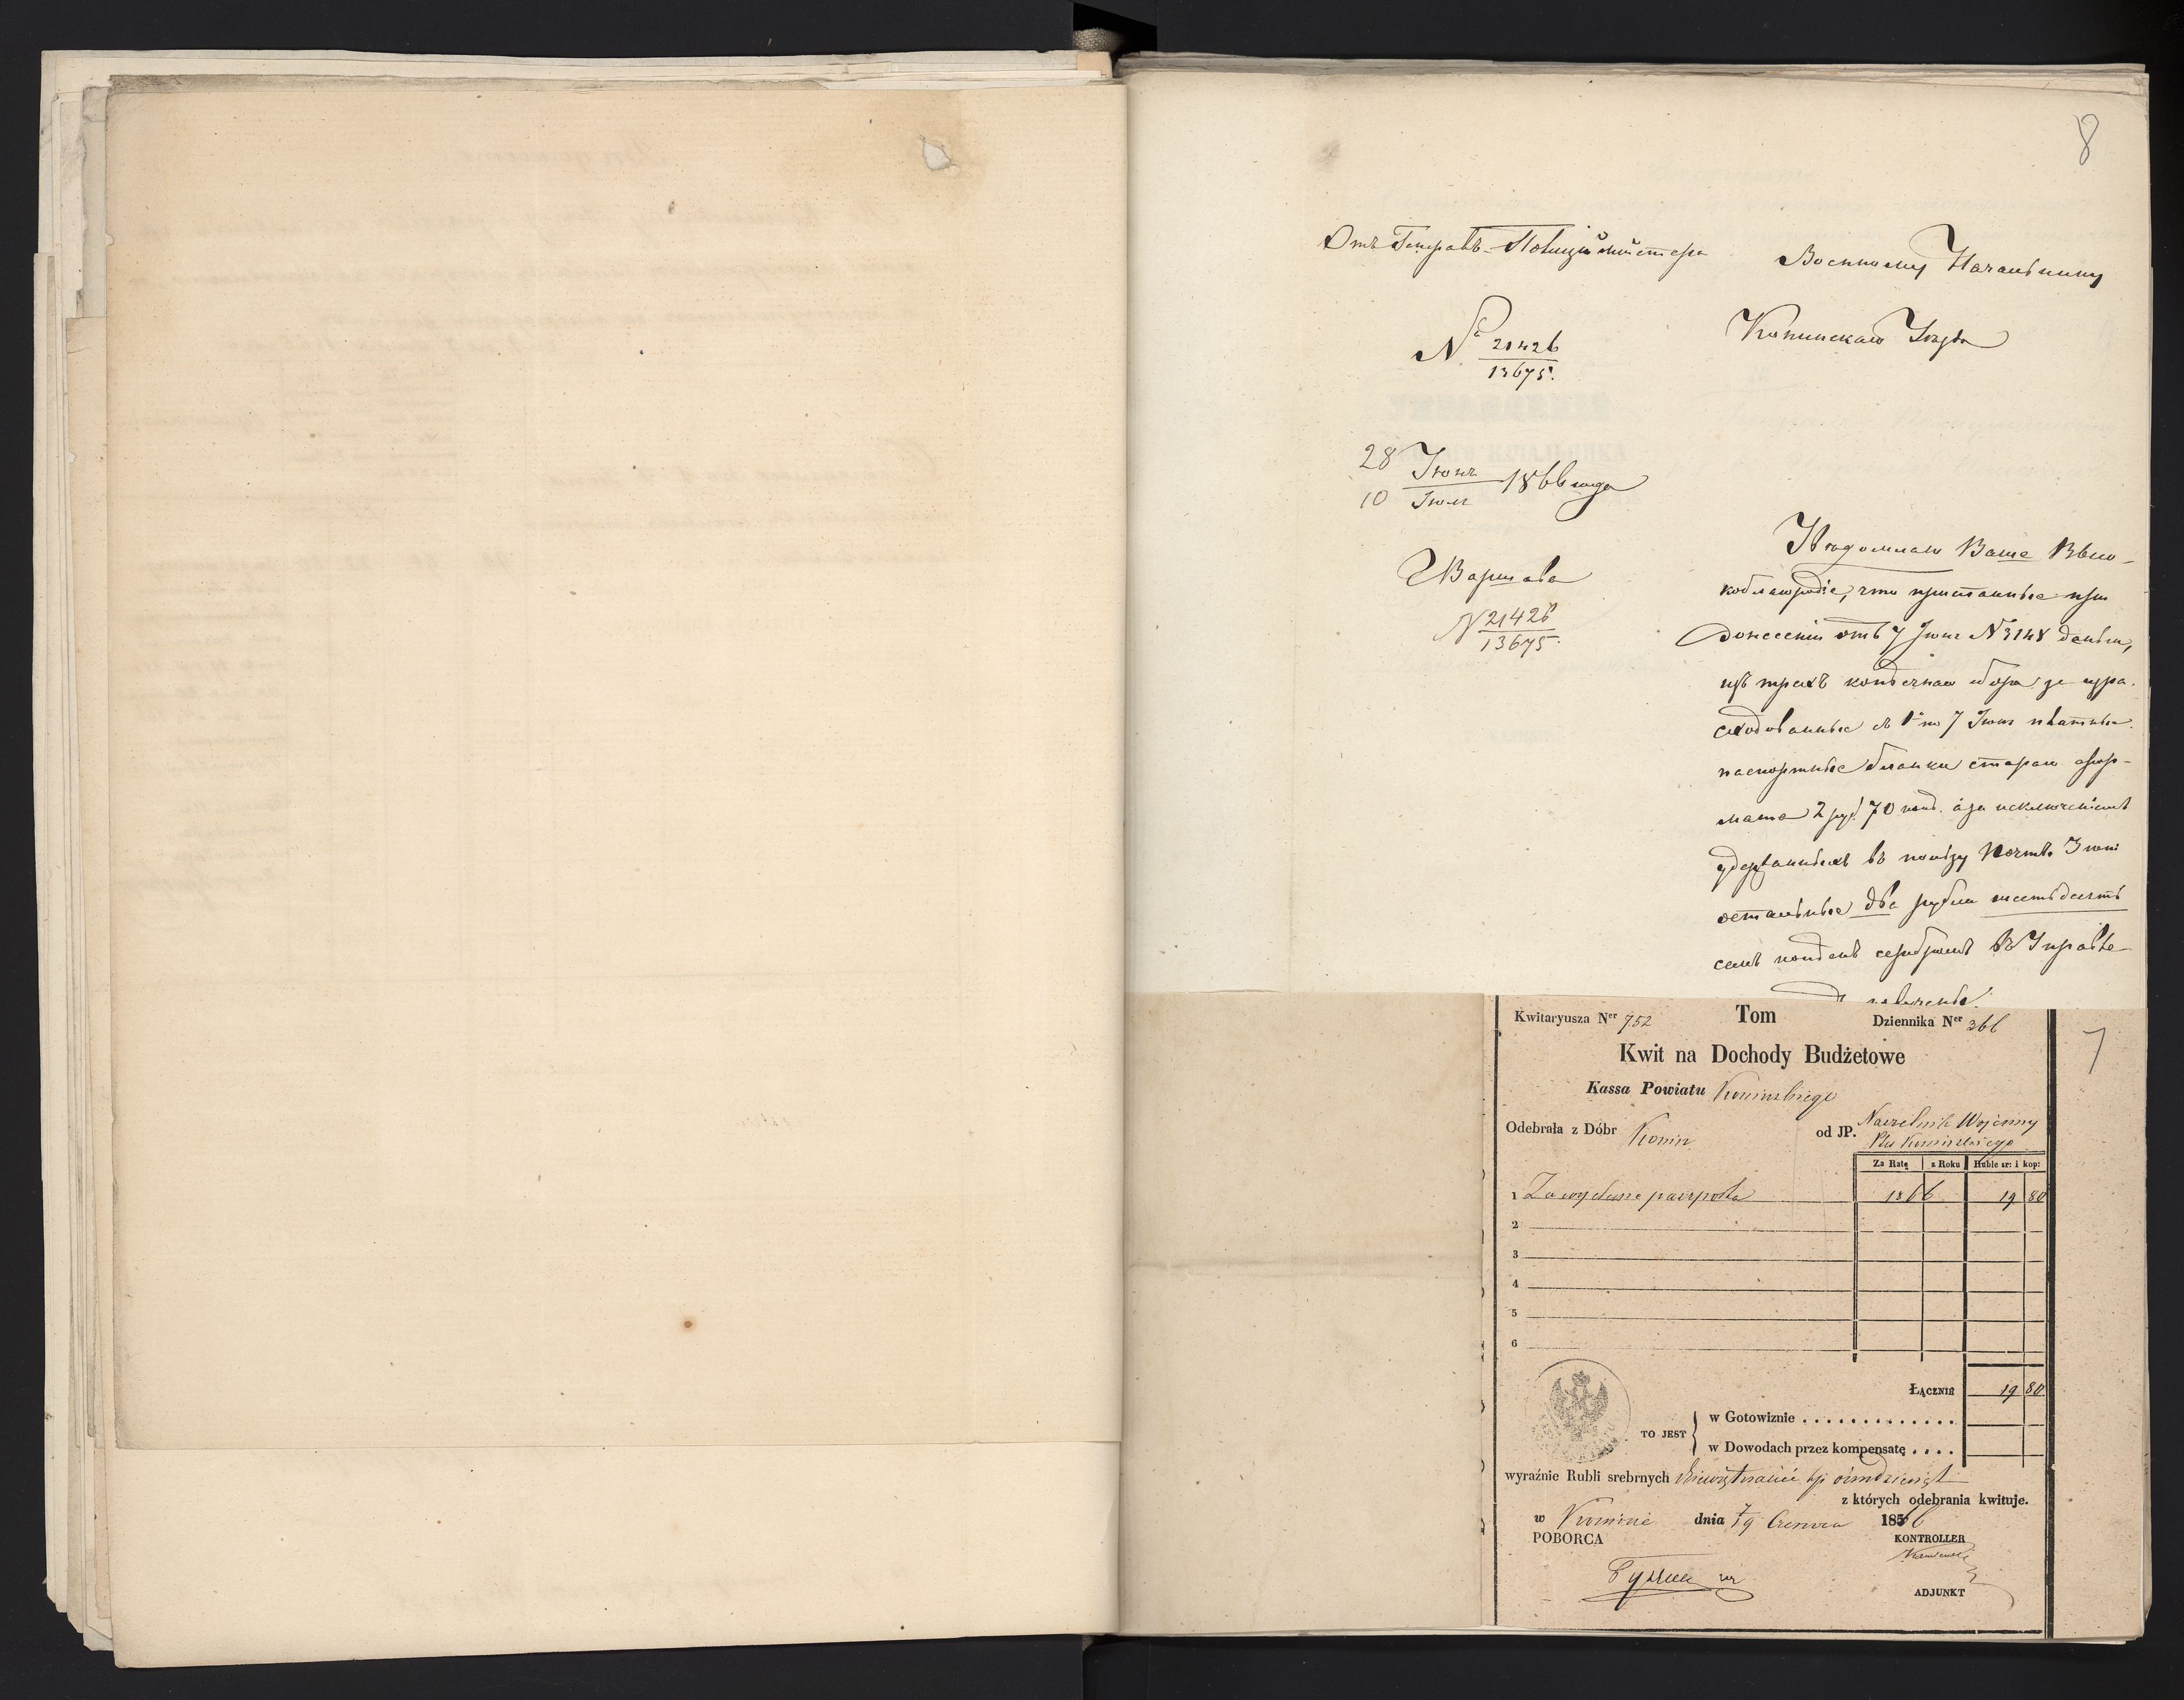 8
Отъ Генералъ-Полиціймейстера
№ 21426
13675.
28 Іюня
10 Іюля 1866 года
Варшава
№ 21426
13675.
Военному Начальнику
Конинскаго Уѣзда
Увѣдомляю Ваше Высо-
коблагородіе, что присланные при
донесеніи отъ 7 Іюня № 3148 деньги,
изъ трехъ копѣечнаго сбора за изра-
сходованные съ 1 по 7 Іюня платные
паспортные бланки стараго фор-
мата 2 руб. 70 коп. а за исключеніемъ
удержанныхъ въ пользу Почты 3 коп.
остальные два рубля шестьдесятъ
семь копѣекъ серебромъ въ Управле-
Kwitaryusza Ner 752
Tom
Dziennika Ner 366
7
Kwit na Dochody Budżetowe
Kassa Powiatu Konińskiego
Odebrała z Dóbr Konin od JP. Naczelnik Wojenny
Ptu Konińskiego
Za Ratę z Roku Ruble sr: i kop:
1 Za wydane paszporta 1866 19 80
2
3
4
5
6
ŁĄCZNIE 19 80
TO JEST
w Gotowiznie
w Dowodach przez kompensatę
wyraźnie Rubli srebrnych dziewiętnaście kp ośmdziesiąt
z których odebrania kwituje.
w Koninie dnia 7/19 Czerwca 1866
POBORCA
KONTROLLER
ADJUNKT